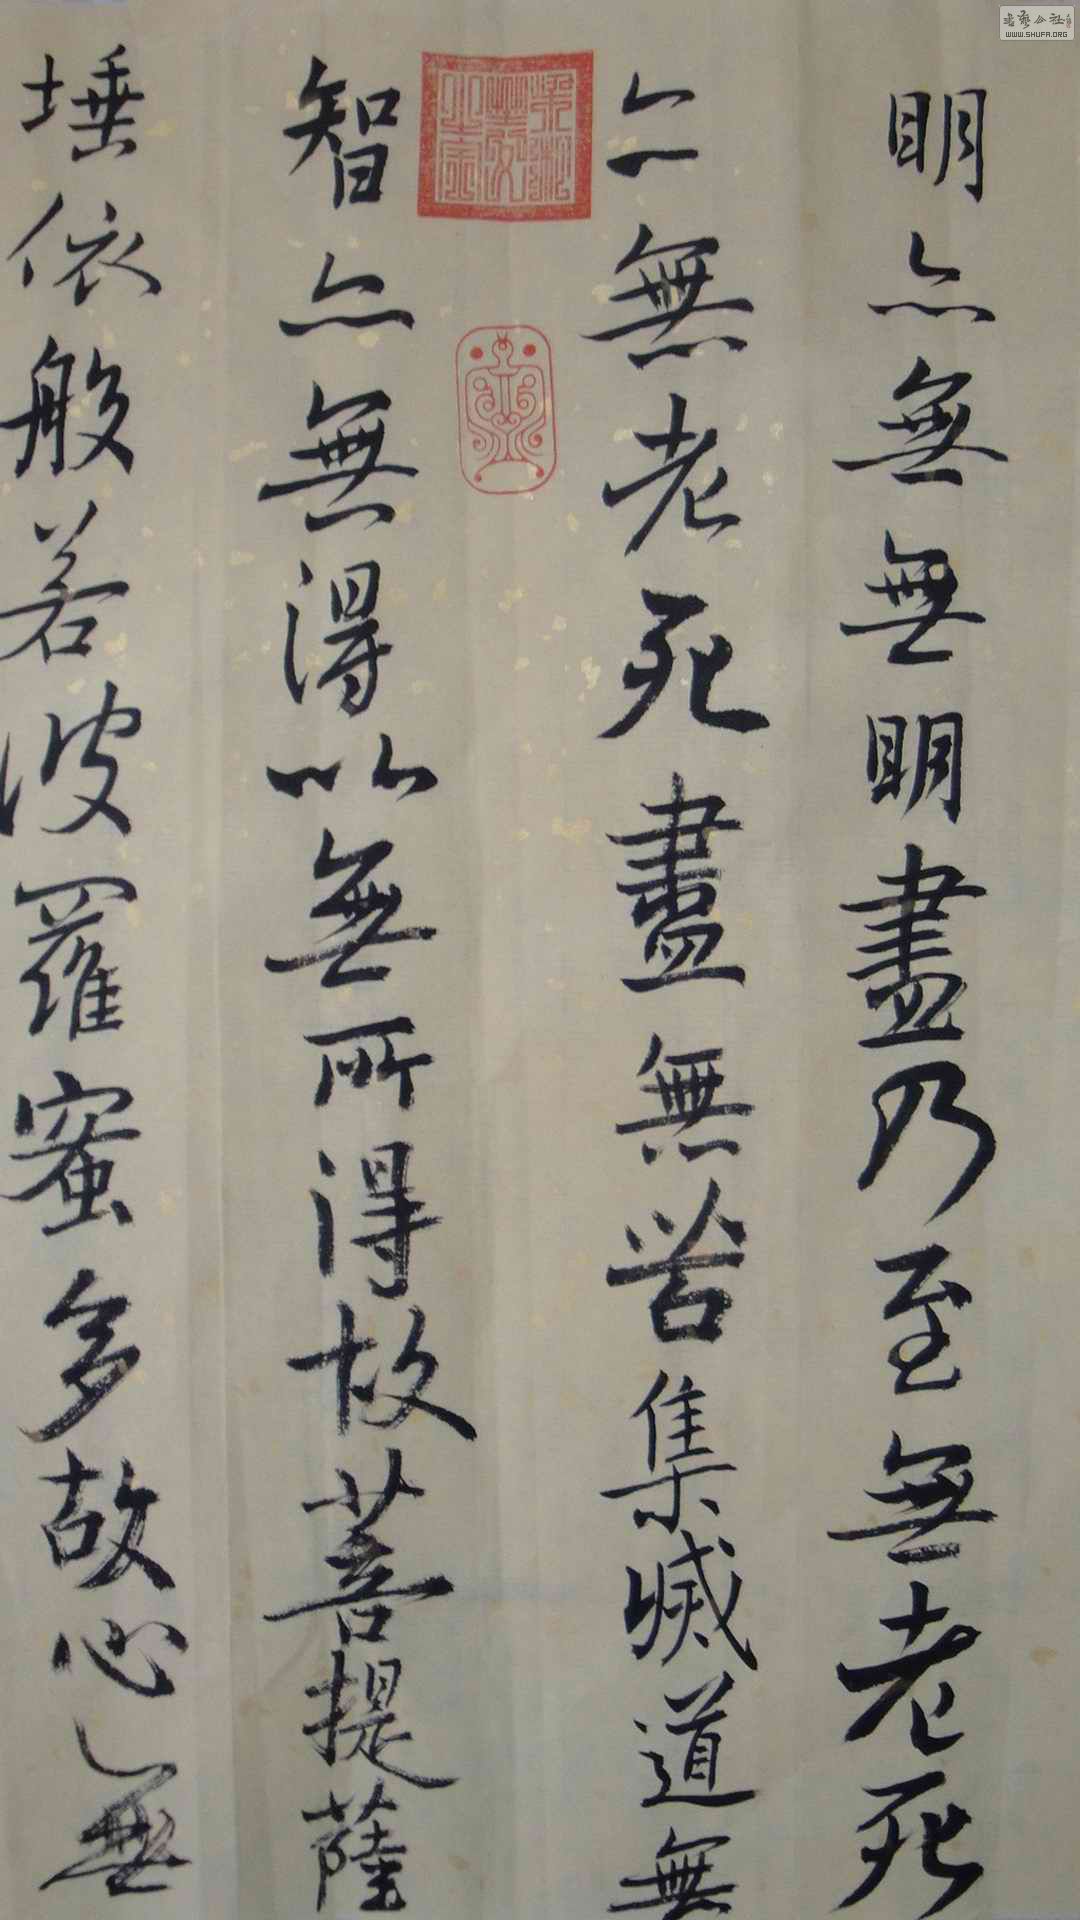 明亦無無明盡乃至無老死
亦無老死盡無苦集滅道無
智亦無得以無所得故菩提薩
埵依般若波羅蜜多故心無
WWW.SHUFA.ORG